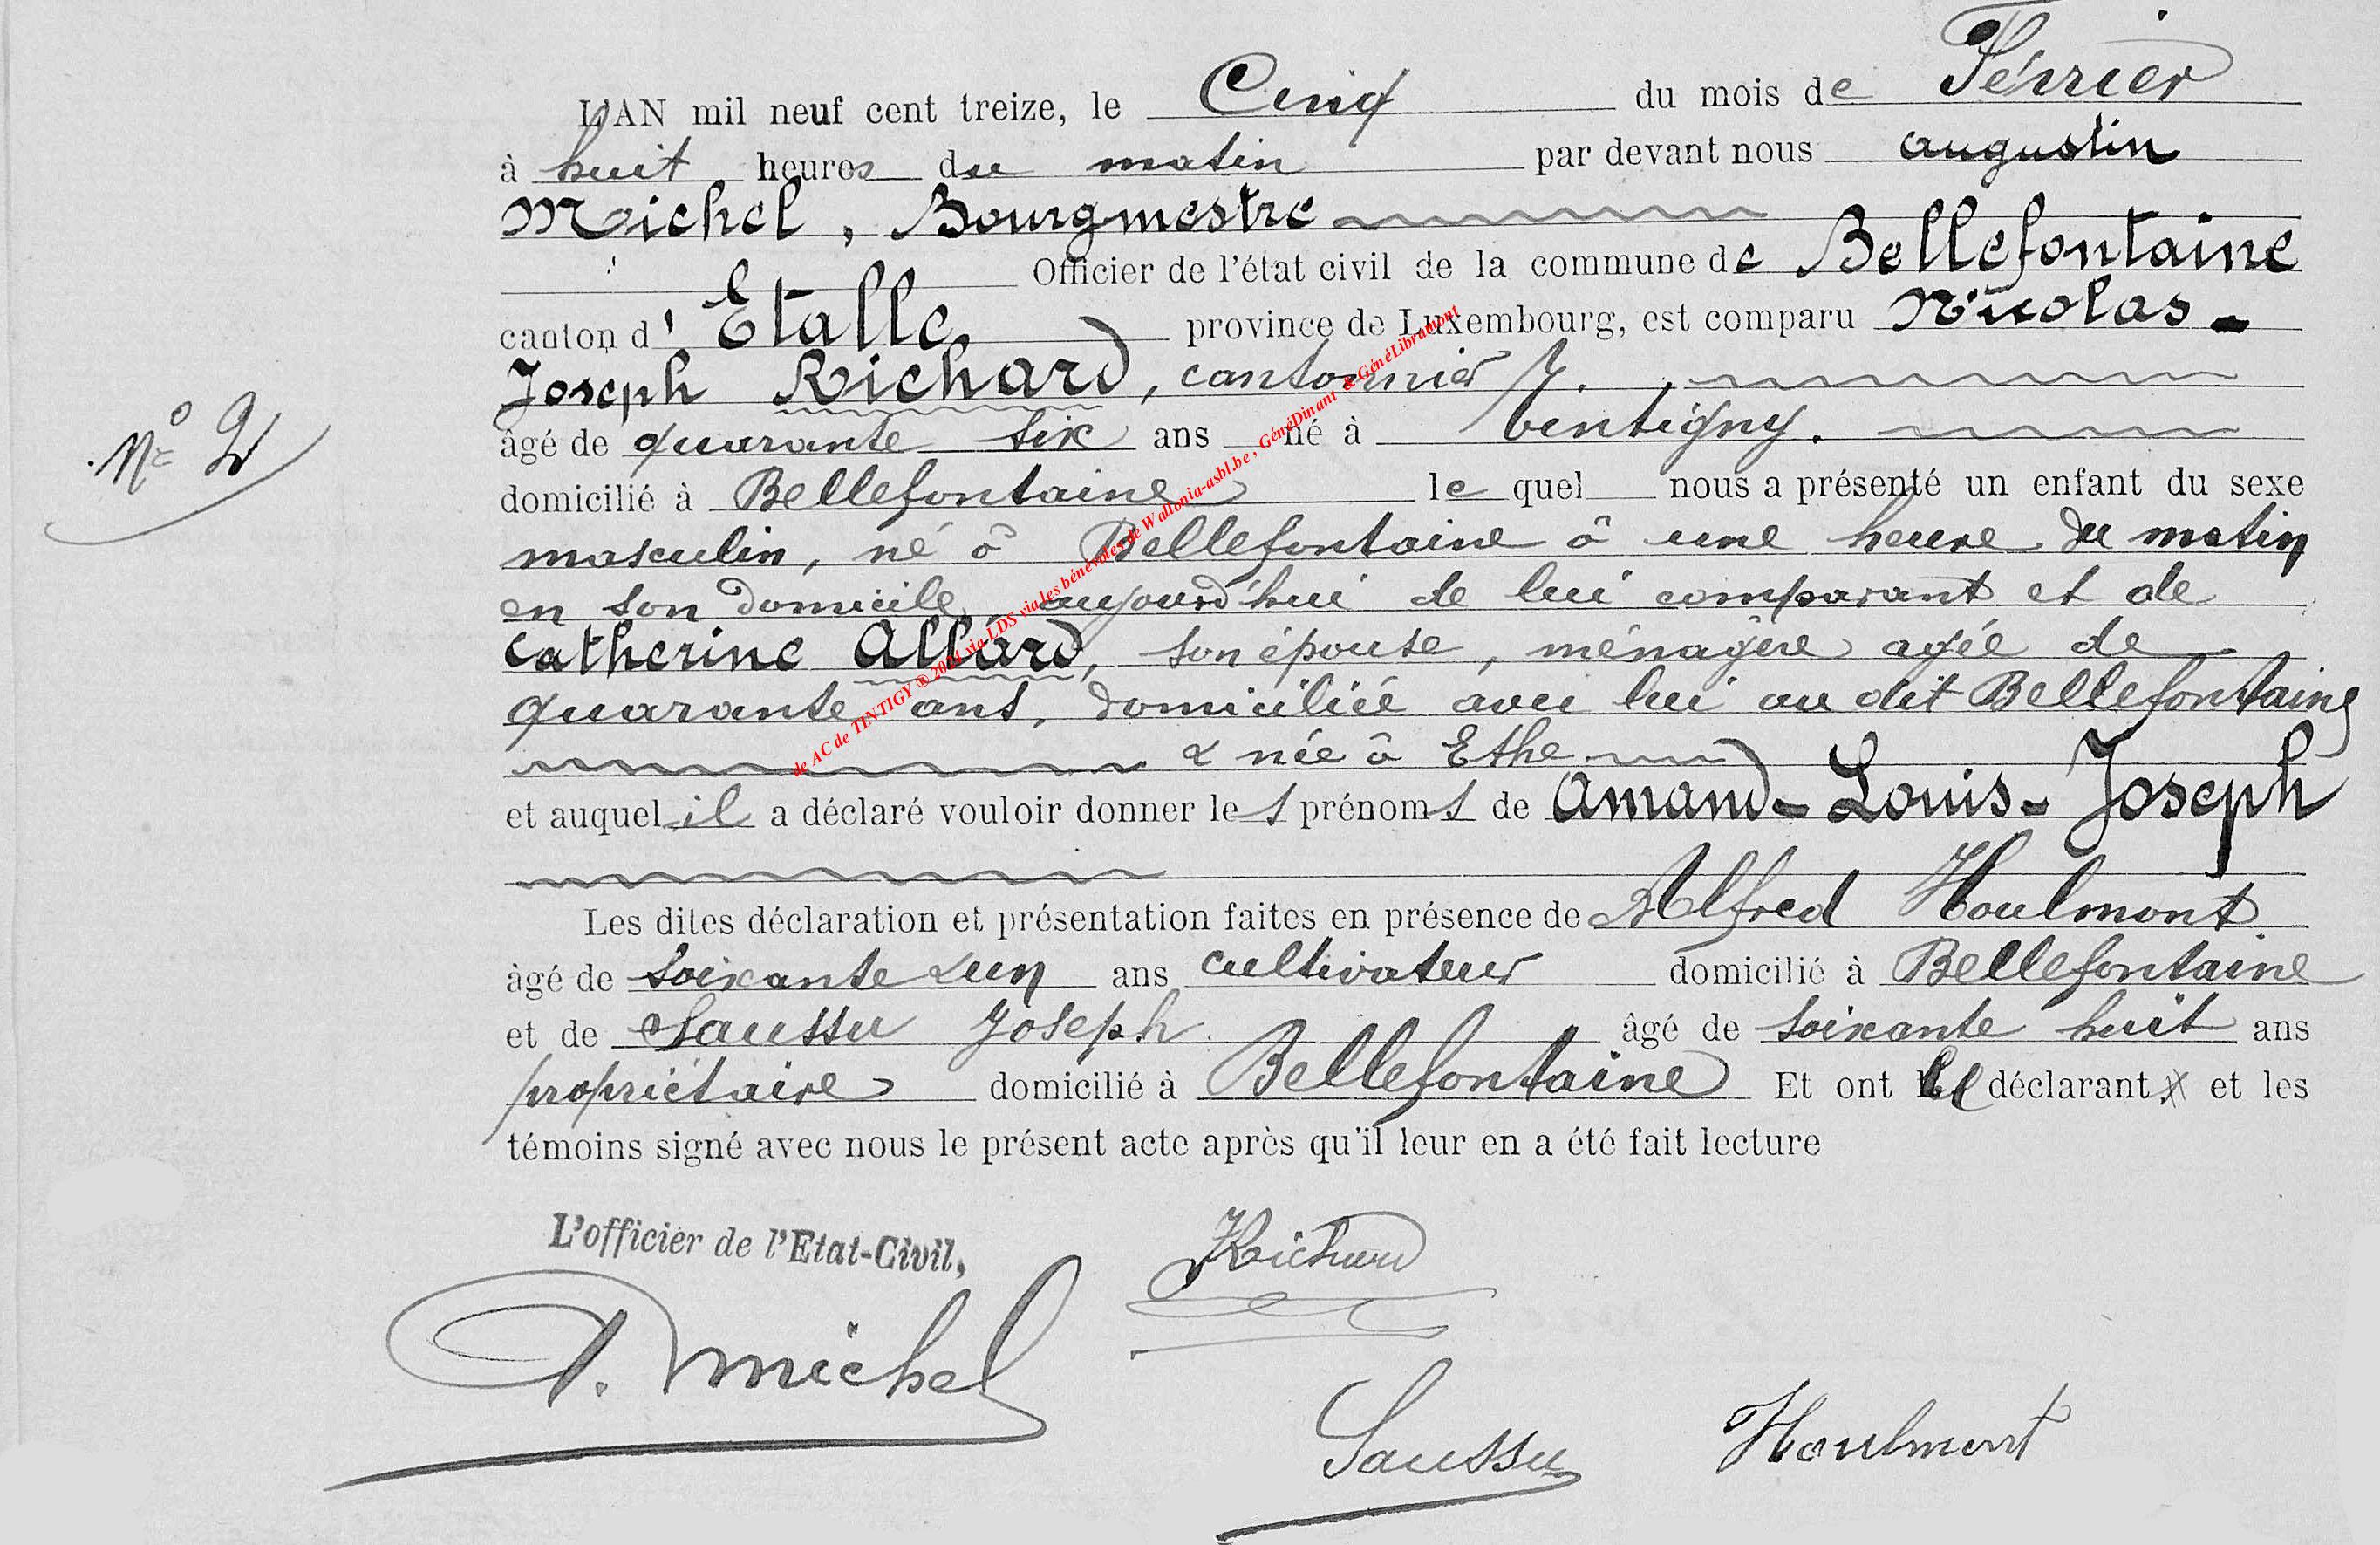 L'AN mil neuf cent treize, le Cinq du mois de Février
à huit heures du matin par devant nous Augustin
Michel, Bourgmestre
Officier de l'état civil de la commune de Bellefontaine
canton d'Etalle, province de Luxembourg, est comparu Nicolas-
Joseph Richard, cantonnier
N° 2
âgé de quarante six ans né à Tintigny.
domicilié à Bellefontaine lequel nous a présenté un enfant du sexe
masculin, né à Bellefontaine à une heure du matin
en son domicile, aujourd'hui de lui comparant et de
Catherine Allard, son épouse, ménagère agée de
quarante ans, domiciliée avec lui au dit Bellefontaine
& née à Ethe
et auquel il a déclaré vouloir donner les prénoms de Amand-Louis-Joseph
Les dites déclaration et présentation faites en présence de Alfred Houlmont
âgé de soixante & un ans cultivateur domicilié à Bellefontaine
et de Saussu Joseph âgé de soixante huit ans
propriétaire domicilié à Bellefontaine Et ont le déclarant et les
témoins signé avec nous le présent acte après qu'il leur en a été fait lecture
L'officier de l'Etat-Civil,
Richard
A. Michel
Saussu Houlmont
de AC de TINTIGY ® 2024 via LDS via les bénévoles de Wallonia-asbl.be, GénéDinant & GénéLibramont